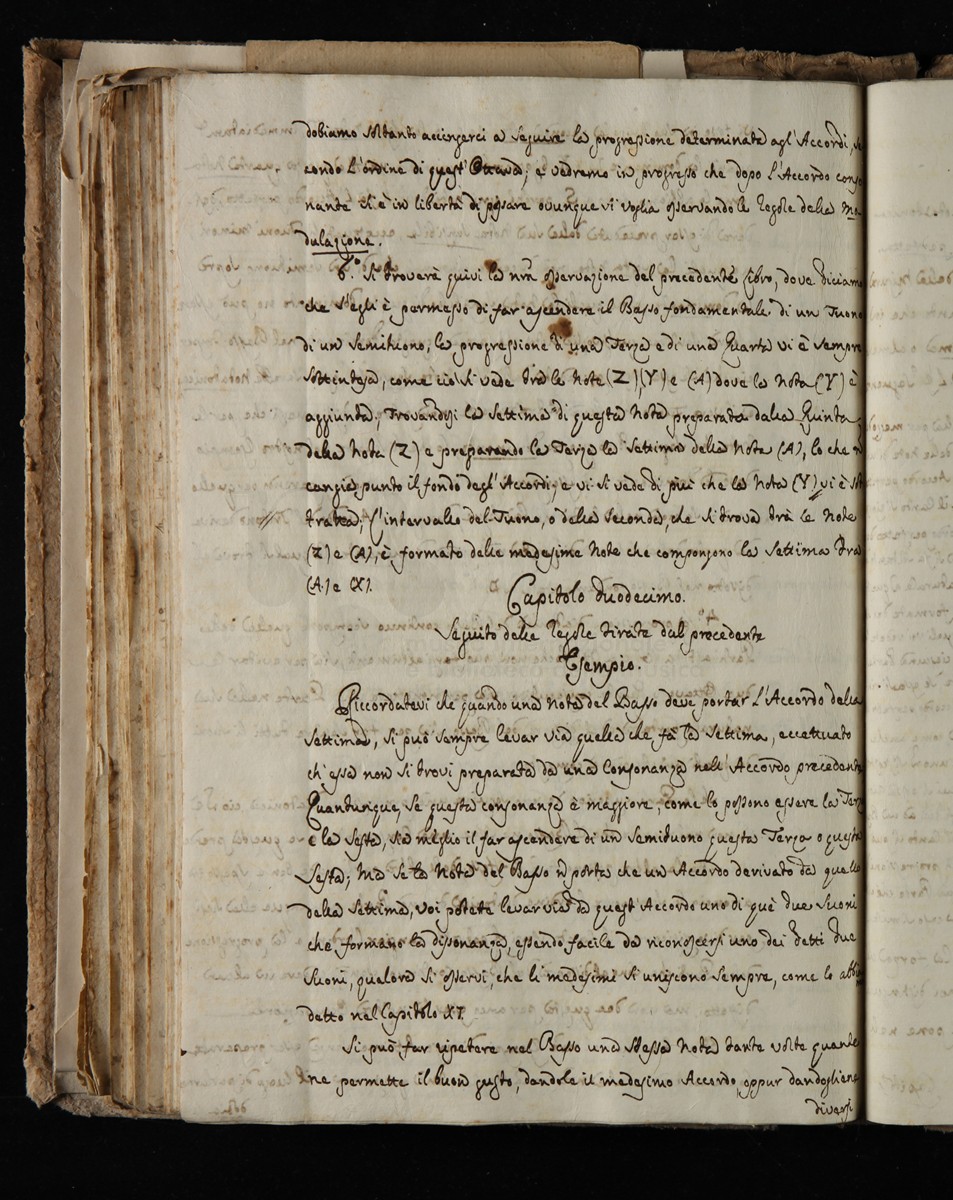 dobiamo soltanto accingerci a seguire la progressione determinata agl'Accordi, se
condo l'ordine di quest'Ottava; e vedremo in progresso che dopo l'Accordo conso
nante si è in libertà di passare ovunque si voglia osservando le regole della Mo
dulazione.
6.° Si troverà quivi la nr̃a osservazione del precedente Libro, dove diciam
che s'egli è permesso di far ascendere il Basso fondamentale di un Tuono
di un semituono, la progressione di una Terza e di una Quarta vi è sempre
sottintesa, come ciò si vede trà le Note (Z) (Y) e (A) dove la Nota (Y) è
aggiunta; Trovandosi la settima di questa Nota preparata dalla Quinta
della Nota (Z) e preparando la Terza la settima della Nota (A), lo che n
cangia punto il fondo degl'Accordi; e vi si vede di più che la Nota (Y) vi è sot
tratta; l'intervallo del Tuono, o della seconda, che si trova trà le Note
(Z) e (A), è formato delle medesime Note che compongono la settima tra
(A) e (X).
Capitolo Duodecimo.
Seguito delle regole tirate dal precedente
Esempio.
Riccordatevi che quando una Nota del Basso deve portar l'Accordo della
settima, si può sempre levar via quella che fà la settima, eccettuato
ch'essa non si trovi preparata da una Consonanza nell'Accordo precedente
Quantunque, se questa consonanza è maggiore, come lo possono essere la Terz
e la sesta, sia meglio il far ascendere di un semituono questa Terza o questa
sesta; Ma se la Nota del Basso ñ porta che un Accordo derivato da quello
della settima, voi potete levar via da quest'Accordo uno di què due suoni
che formano la dissonanza, essendo facile da riconoscersi uno dei detti due
suoni, qualora si osservi, che li medesimi si uniscono sempre, come lo abbi
detto nel Capitolo XI.
Si può far ripetere nel Basso una stessa Nota tante volte quante
ne permette il buon gusto, dandole il medesimo Accordo, oppur dandogliene
diversi